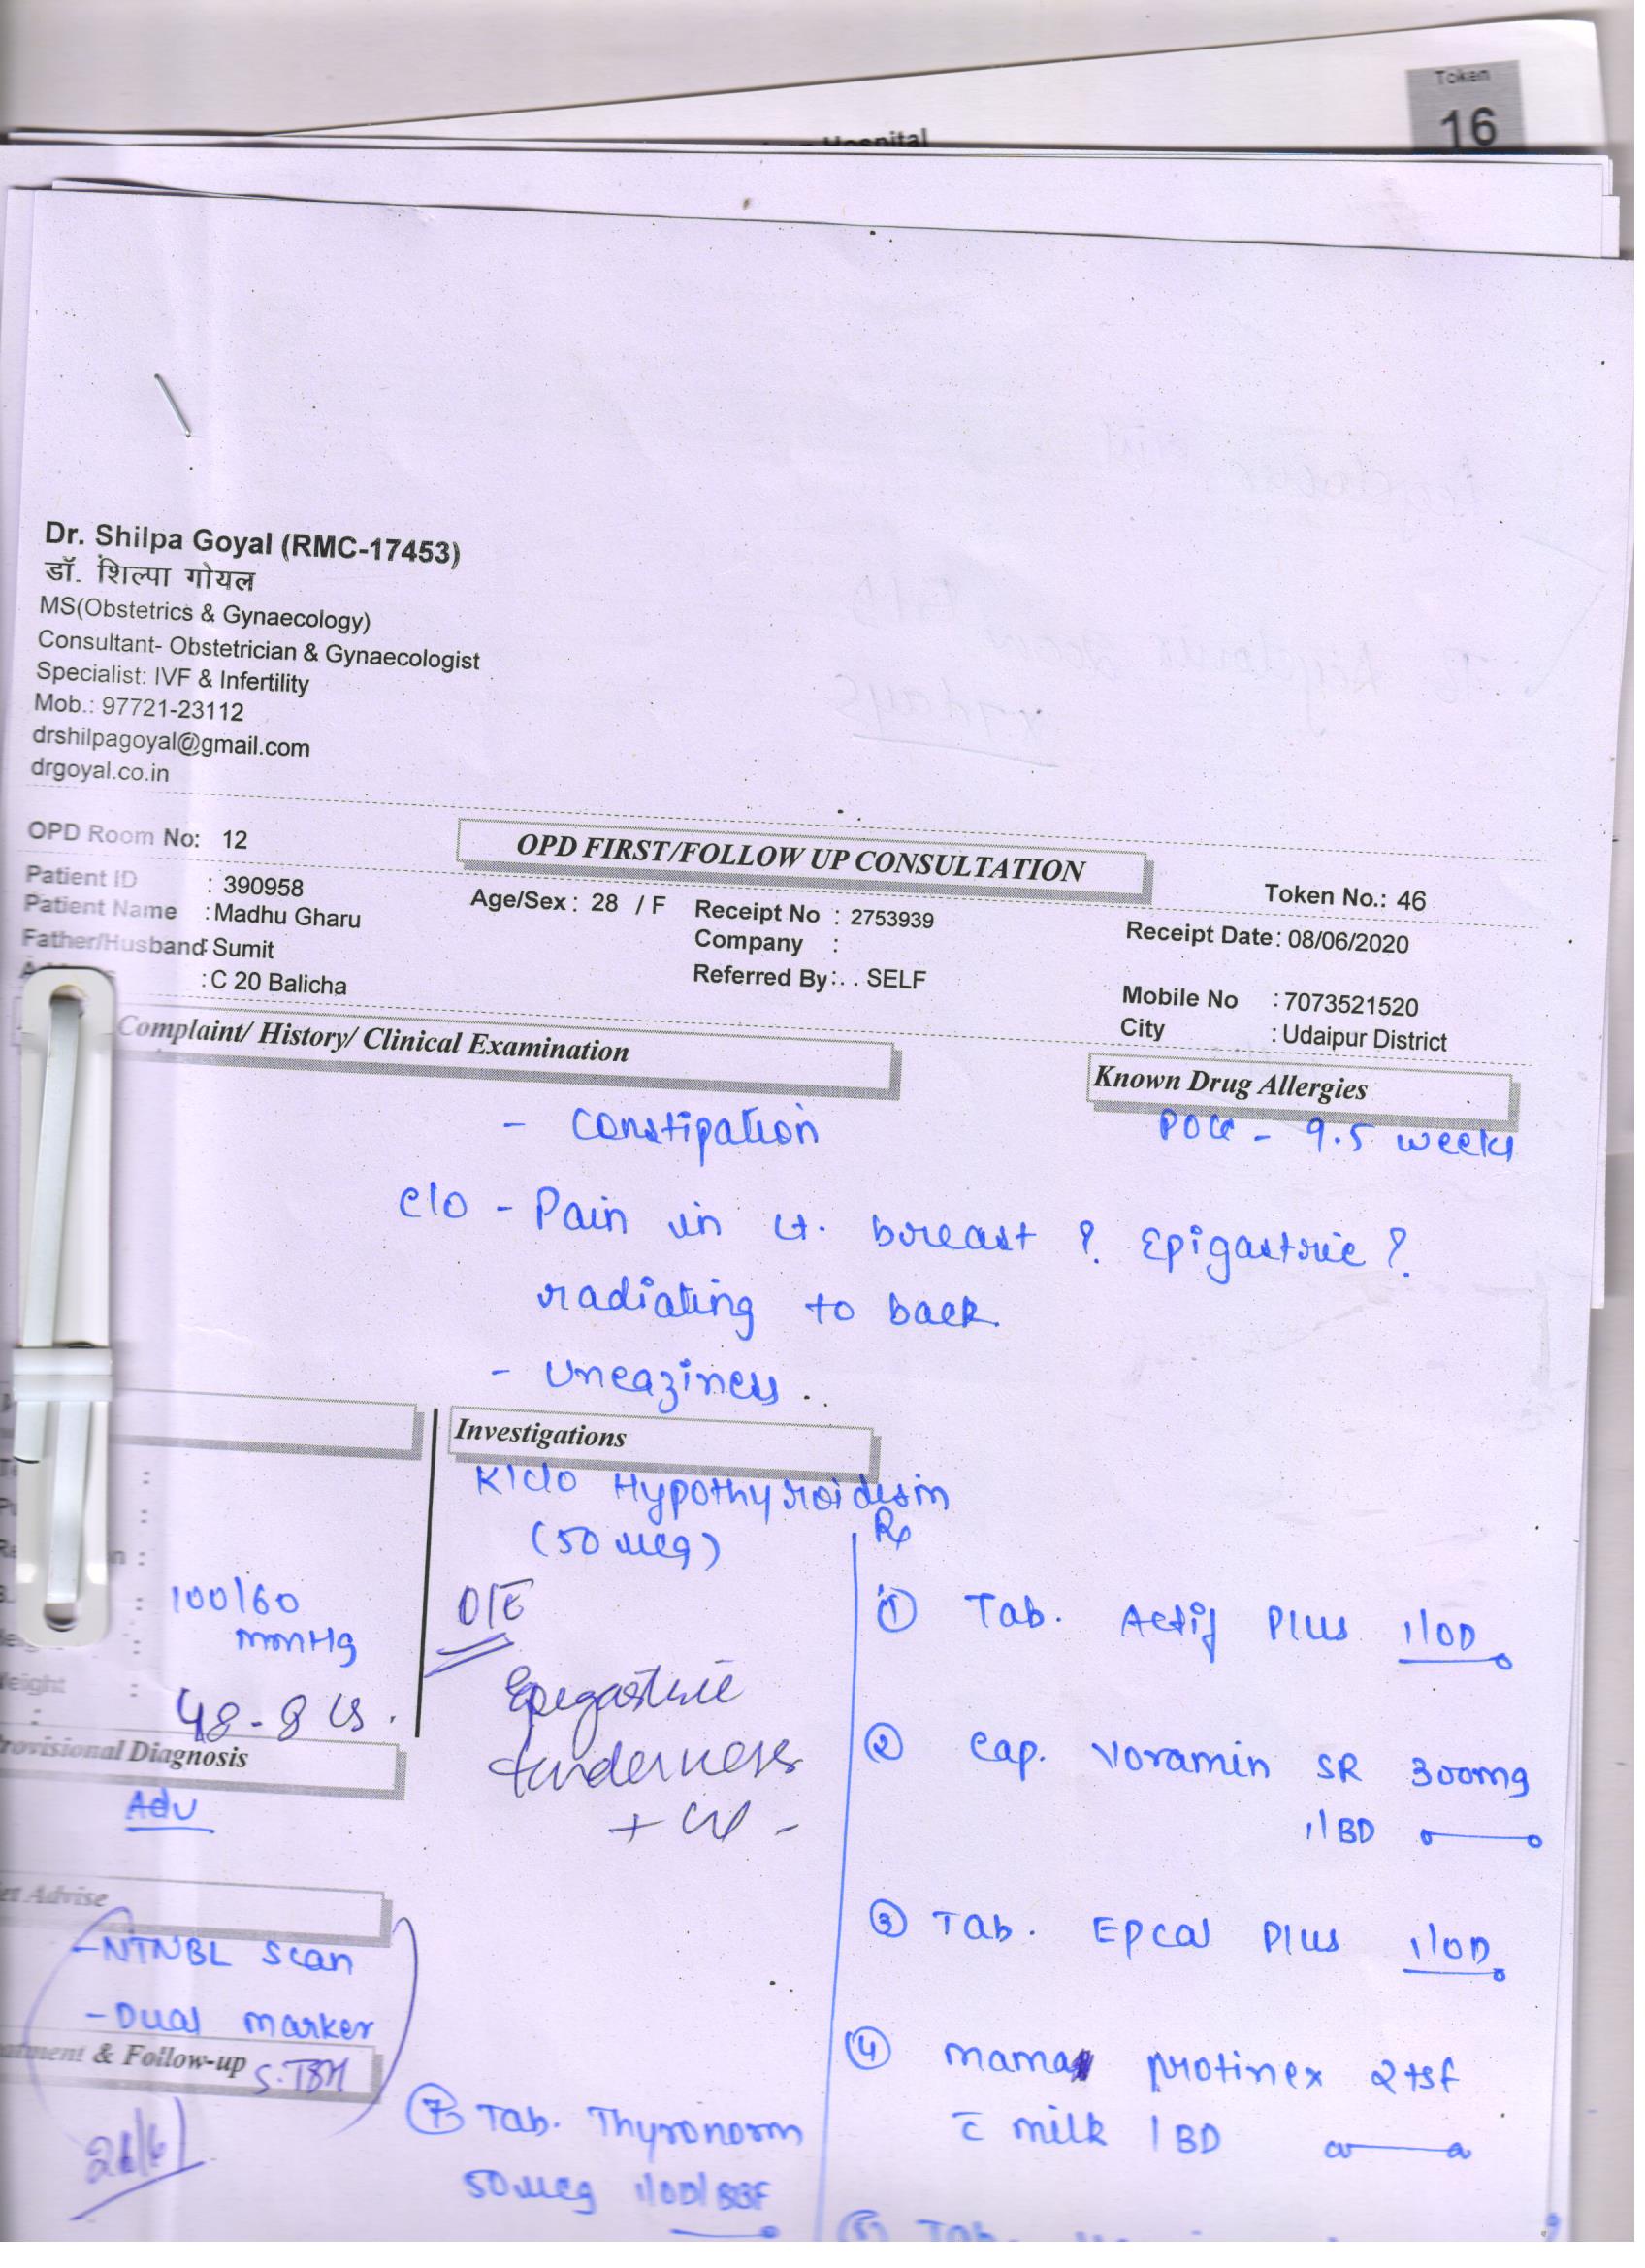 Token
16
Hospital
Dr. Shilpa Goyal (RMC-17453)
डॉ. शिल्पा गोयल
MS(Obstetrics & Gynaecology)
Consultant- Obstetrician & Gynaecologist
Specialist: IVF & Infertility
Mob.: 97721-23112
drshilpagoyal@gmail.com
drgoyal.co.in
OPD Room No: 12
OPD FIRST/FOLLOW UP CONSULTATION
Token No.: 46
Patient ID : 390958
Age/Sex : 28 / F
Receipt No : 2753939
Receipt Date: 08/06/2020
Patient Name : Madhu Gharu
Company :
Father/Husband: Sumit
Referred By:.. SELF
Mobile No : 7073521520
: C 20 Balicha
City : Udaipur District
Complaint/ History/ Clinical Examination
Known Drug Allergies
- Constipation
POG - 9.5 weeks
c/o - Pain in Lt. breast ? Epigastric ?
radiating to back
- Uneaziness.
Investigations
K/c/o Hypothyroidism
(50 mcg)
Rx
100/60
mmHg
O/E
① Tab. Actif Plus 1/OD
Weight :
48.8
Epigastric
tenderness
+
② Cap. Voramin SR 300mg
1/BD
Provisional Diagnosis
Adv
③ Tab. Epcal Plus 1/OD
Advise
- NTNBL Scan
- Dual marker
& Follow-up
S.TSH
④ mama protinex 2tsf
c̄ milk 1 BD
⑦ Tab. Thyronorm
50 mcg 1/OD/BBF
Tab.